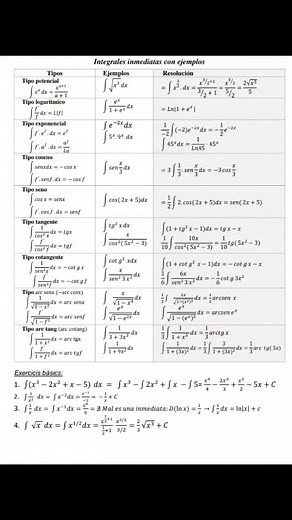 Integrales inmediatas con ejemplos
Tipos Ejemplos Resolución
Tipo potencial
∫ xᵃ dx = xᵃ⁺¹/(a + 1)
∫ √x³ dx
= ∫ x^(3/2) . dx = x^(3/2+1)/(3/2 + 1) = x^(5/2)/(5/2) = 2√x⁵/5
Tipo logarítmico
∫ f'/f dx = L|f|
∫ eˣ/(1 + eˣ) dx
= Ln|1 + eˣ|
Tipo exponencial
∫ f'. eᶠ. dx = eᶠ
∫ f'. aᶠ. dx = aᶠ/La
∫ e⁻²ˣ dx
∫ 5ˣ. 9ˣ. dx
1/-2 ∫ (−2)e⁻²ˣ dx = −1/2 e⁻²ˣ
∫ 45ˣ dx = 1/Ln45 . 45ˣ
Tipo coseno
∫ senxdx = −cos x
∫ f'. senf. dx = −cos f
∫ sen x/3 dx
= 3 ∫ 1/3 . sen x/3 dx = −3 cos x/3
Tipo seno
∫ cosx = senx
∫ f'. cosf. dx = senf
∫ cos(2x + 5)dx
= 1/2 ∫ 2. cos(2x + 5)dx = sen(2x + 5)
Tipo tangente
∫ 1/cos²x dx = tgx
∫ f'/cos²f dx = tgf
∫ tg²x dx
∫ x/cos²(5x² − 3) dx
∫ (1 + tg²x − 1)dx = tg x − x
1/10 ∫ 10x/cos²(5x² − 3) dx = 1/10 tg(5x² − 3)
Tipo cotangente
∫ 1/sen²x dx = −cot gx
∫ f'/sen²f dx = −cot gf
∫ cot g²x dx
∫ x/sen²3x² dx
∫ (1 + cot g²x − 1)dx = −cot g x − x
1/6 ∫ 6x/sen²3x² dx = −1/6 cot g 3x²
Tipo arc sen (−arc cos)
∫ 1/√(1 − x²) dx = arc senx
∫ f'/√(1 − f²) dx = arc senf
∫ x/√(1 − x⁴) dx
∫ eˣ/√(1 − e²ˣ) dx
1/2 ∫ 2x/√(1−(x²)²) dx = 1/2 arcsen x
∫ eˣ/√(1 − (eˣ)²) dx = arcsen eˣ
Tipo arc tang (arc cotang)
∫ 1/(1 + x²) dx = arc tgx
∫ f'/(1 + f²) dx = arc tgf
∫ 1/(3 + 3x²) dx
∫ 1/(1 + 9x²) dx
1/3 ∫ 1/(1 + x²) dx = 1/3 arctg x
∫ 1/(1 + (3x)²) dx = 1/3 ∫ 3/(1 + (3x)²) dx = 1/3 arc tg(3x)
Exercicis bàsics:
1. ∫(x³ − 2x² + x − 5) dx = ∫ x³ − ∫ 2x² + ∫ x − ∫ 5 = x⁴/4 − 2x³/3 + x²/2 − 5x + C
2. ∫ 1/x² dx = ∫ x⁻² dx = x⁻¹/−1 = −1/x + C
3. ∫ 1/x dx = ∫ x⁻¹ dx = x⁰/0 = ∄ Mal es una inmediata: D(ln x) = 1/x → ∫ 1/x dx = ln|x| + c
4. ∫ √x dx = ∫ x^(1/2) dx = x^(1/2+1)/(1/2+1) = x^(3/2)/(3/2) = 2/3 √x³ + C